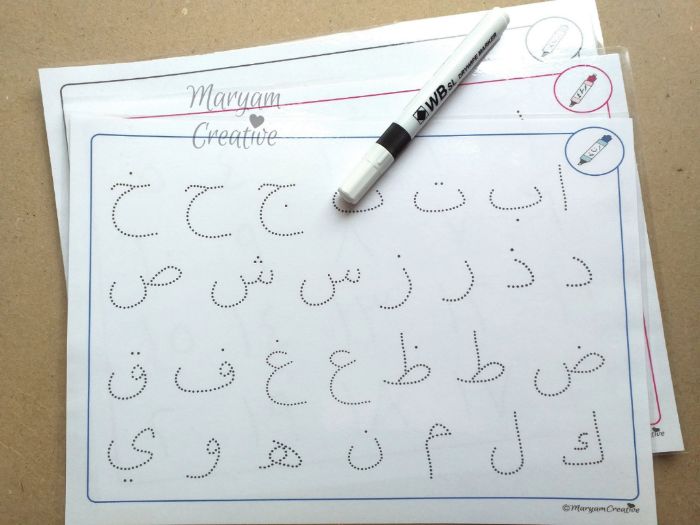 Maryam
Creative
WB SL. DRYWIPE MARKER
ا ب ت ث ج ح خ
د ذ ر ز س ش ص
ض ط ظ ع غ ف ق
ك ل م ن ه و ي
©MaryamCreative